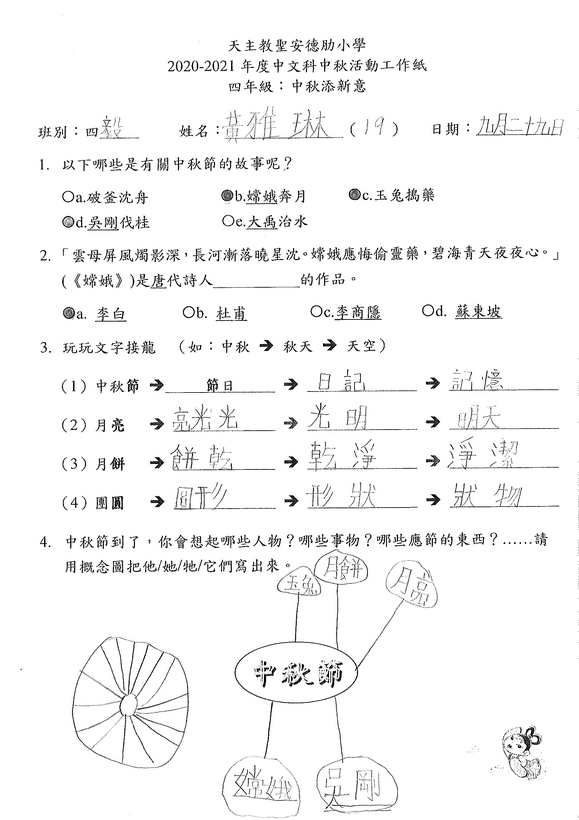 天主教聖安德肋小學
2020-2021 年度中文科中秋活動工作紙
四年級：中秋添新意
班別：四毅 姓名：黃雅琳（19） 日期：九月二十九日
1. 以下哪些是有關中秋節的故事呢？
a.破釜沈舟 b.嫦娥奔月 c.玉兔搗藥
d.吳剛伐桂 e.大禹治水
2.「雲母屏風燭影深，長河漸落曉星沈。嫦娥應悔偷靈藥，碧海青天夜夜心。」
(《嫦娥》)是唐代詩人____________的作品。
a. 李白 b. 杜甫 c.李商隱 d. 蘇東坡
3. 玩玩文字接龍 （如：中秋 ➔ 秋天 ➔ 天空）
（1）中秋節 ➔ 節日 ➔ 日記 ➔ 記憶
（2）月亮 ➔ 亮光光 ➔ 光明 ➔ 明天
（3）月餅 ➔ 餅乾 ➔ 乾淨 ➔ 淨潔
（4）團圓 ➔ 圓形 ➔ 形狀 ➔ 狀物
4. 中秋節到了，你會想起哪些人物？哪些事物？哪些應節的東西？……請
用概念圖把他/她/牠/它們寫出來。
玉兔 月餅 月亮
中秋節
嫦娥 吳剛